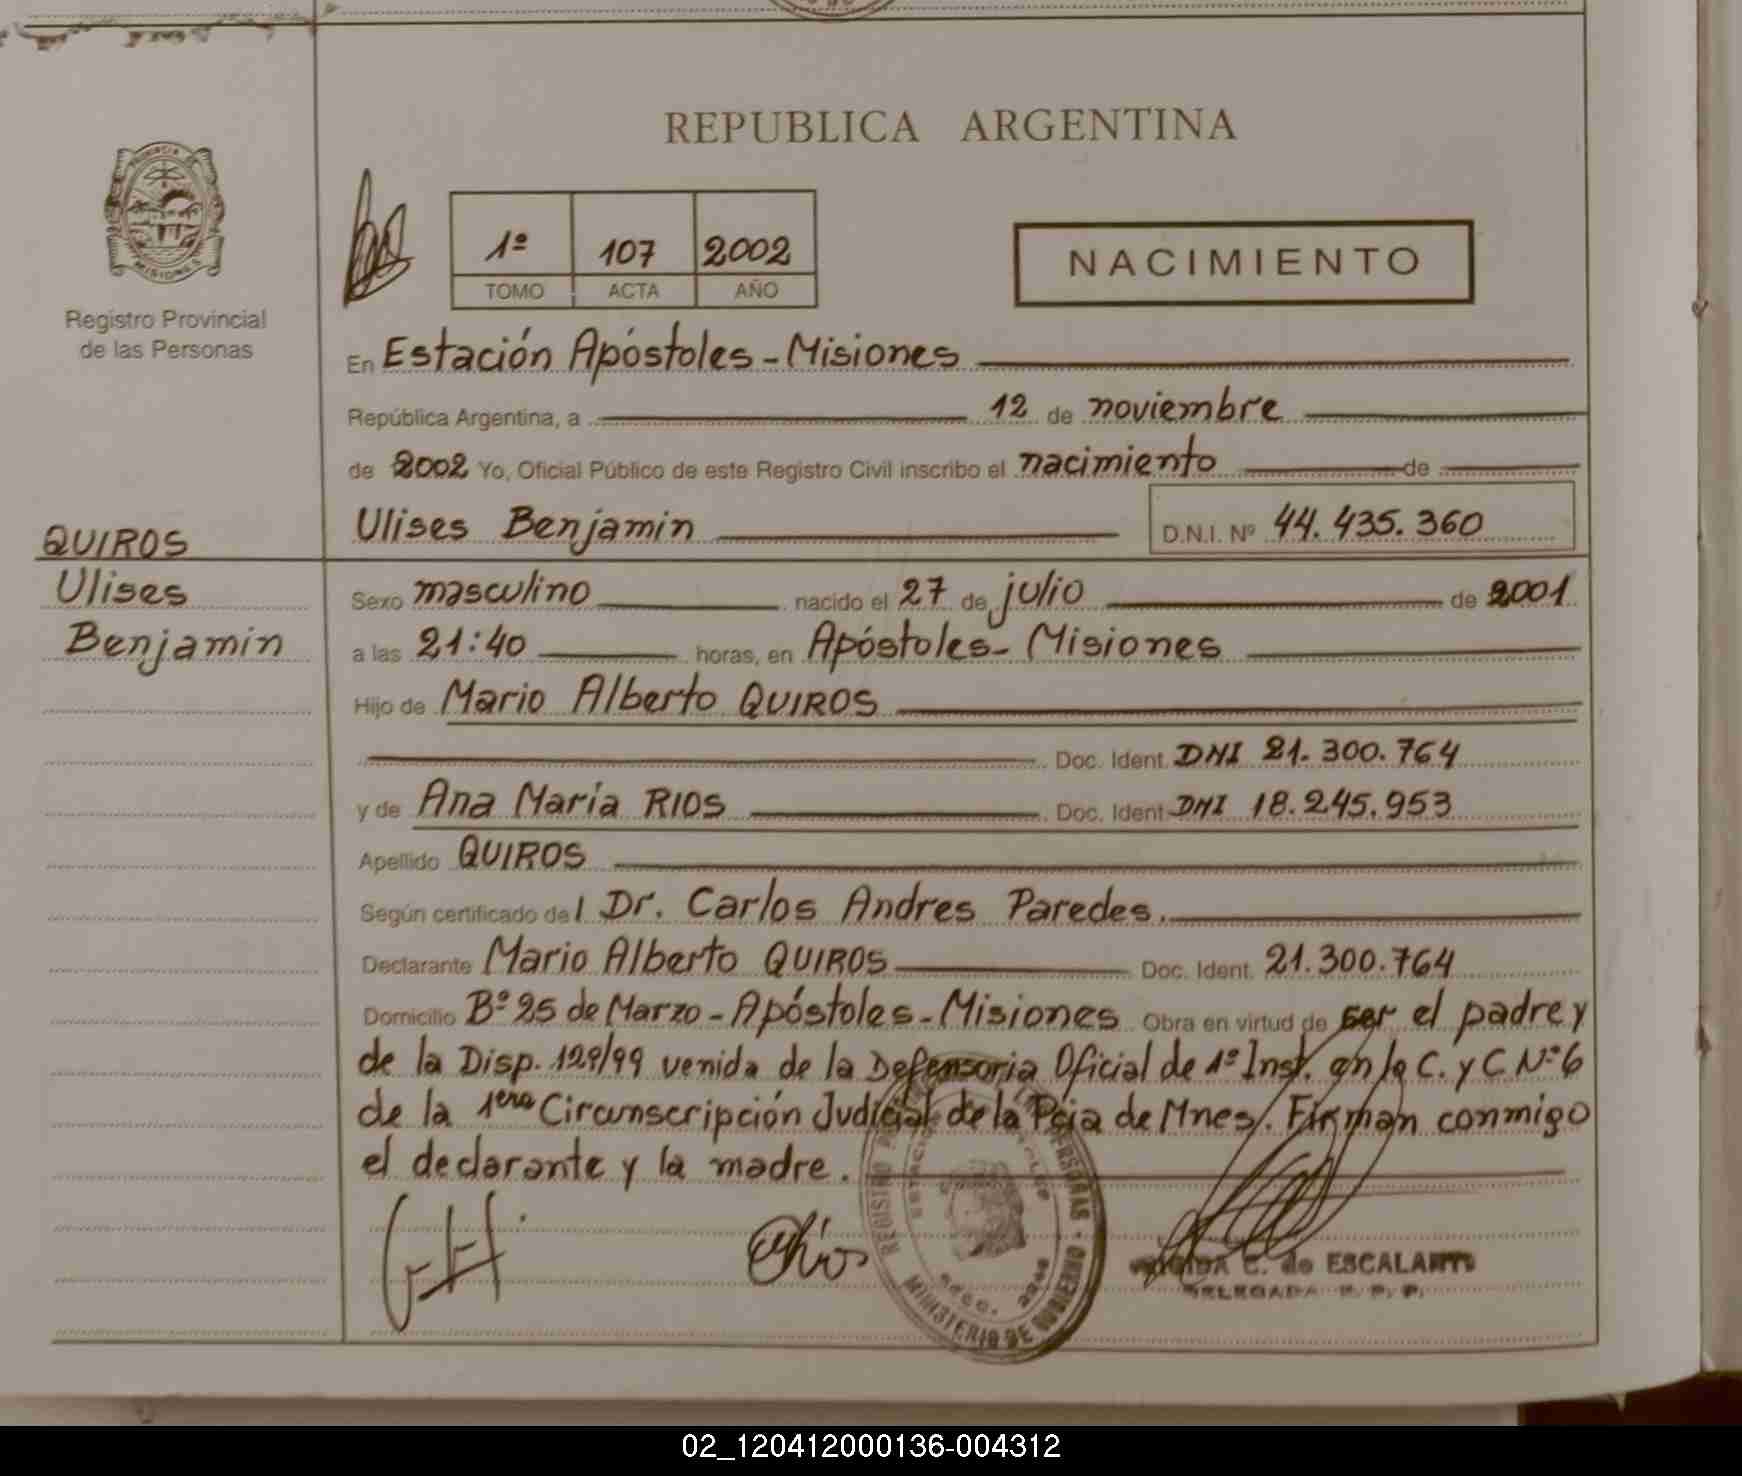 REPUBLICA ARGENTINA
PROVINCIA DE
MISIONES
Registro Provincial
de las Personas
1º 107 2002
TOMO ACTA AÑO
NACIMIENTO
En Estación Apóstoles - Misiones
República Argentina, a 12 de noviembre
de 2002 Yo, Oficial Público de este Registro Civil inscribo el nacimiento de
Ulises Benjamin D.N.I. Nº 44.435.360
QUIROS
Ulises
Benjamin
Sexo masculino nacido el 27 de julio de 2001
a las 21:40 horas, en Apóstoles - Misiones
Hijo de Mario Alberto QUIROS
Doc. Ident. DNI 21.300.764
y de Ana María RIOS Doc. Ident. DNI 18.245.953
Apellido QUIROS
Según certificado del Dr. Carlos Andres Paredes.
Declarante Mario Alberto QUIROS Doc. Ident. 21.300.764
Domicilio Bº 25 de Marzo - Apóstoles - Misiones Obra en virtud de ser el padre y
de la Disp. 129/99 venida de la Defensoria Oficial de 1º Inst. en lo C. y C. Nº 6
de la 1era Circunscripción Judicial de la Pcia de Mnes. Firman conmigo
el declarante y la madre.
REGISTRO PERSONAS
MINISTERIO DE GOBIERNO
C. de ESCALANTE
DELEGADA R. P. P.
02_120412000136-004312